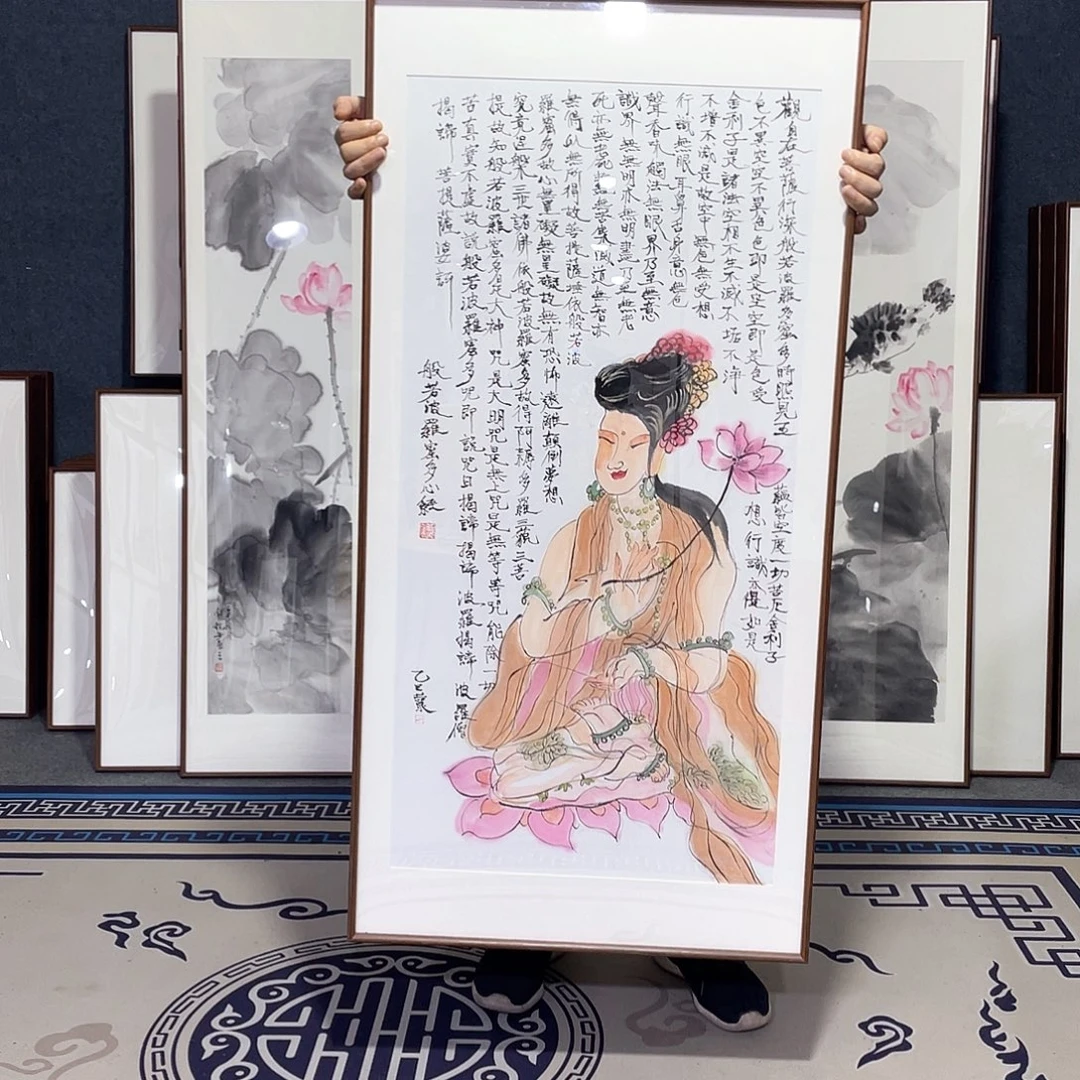 觀自在菩薩行深般若波羅蜜多時照見五
蘊皆空度一切苦厄舍利子
色不異空空不異色色即是空空即是色受
想行識亦復如是
舍利子是諸法空相不生不滅不垢不淨
不增不減是故空中無色無受想
行識無眼耳鼻舌身意無色
聲香味觸法無眼界乃至無意
識界無無明亦無明盡乃至無老
死亦無老死盡無苦集滅道無智亦
無得以無所得故菩提薩埵依般若波
羅蜜多故心無罣礙無罣礙故無有恐怖遠離顛倒夢想
究竟涅槃三世諸佛依般若波羅蜜多故得阿耨多羅三藐三菩
提故知般若波羅蜜多是大神咒是大明咒是無上咒是無等等咒能除一切
苦真實不虛故說般若波羅蜜多咒即說咒曰揭諦揭諦波羅揭諦波羅僧
揭諦菩提薩婆訶
般若波羅蜜多心經
乙巳